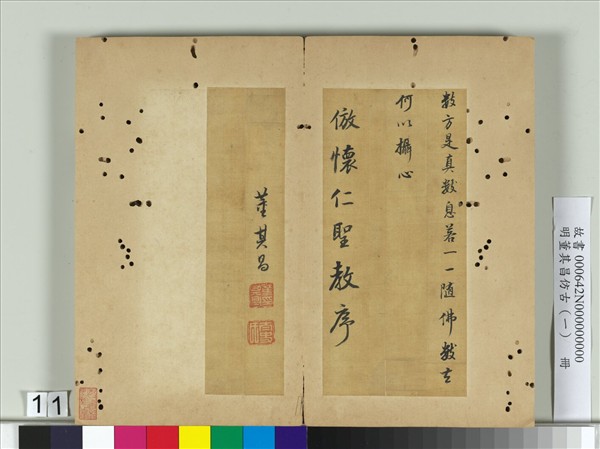 數方是真數息若一一隨佛教去
何以攝心
倣懷仁聖教序
董其昌
故書 000642N000000000
明董其昌仿古（一） 冊
11